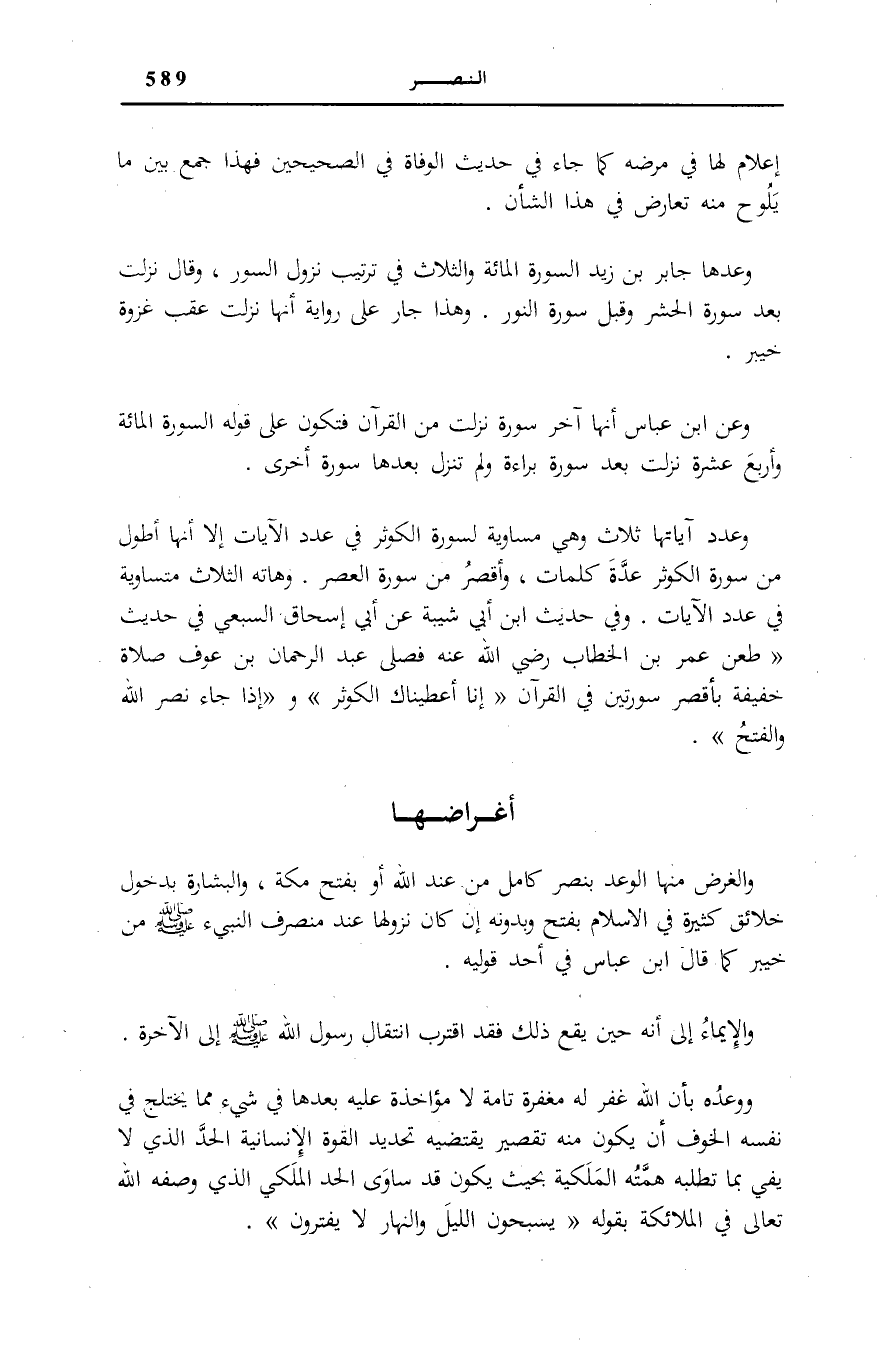 النصر 589
إعلام لها في مرضه كما جاء في حديث الوفاة في الصحيحين فهذا جمع بين ما
يَلُوح منه تعارض في هذا الشأن .
وعدها جابر بن زيد السورة المائة والثلاث في ترتيب نزول السور ، وقال نزلت
بعد سورة الحشر وقبل سورة النور . وهذا جار على رواية أنها نزلت عقب غزوة
خيبر .
وعن ابن عباس أنها آخر سورة نزلت من القرآن فتكون على قوله السورة المائة
وأربعَ عشرة نزلت بعد سورة براءة ولم تنزل بعدها سورة أخرى .
وعدد آياتها ثلاث وهي مساوية لسورة الكوثر في عدد الآيات إلا أنها أطول
من سورة الكوثر عدَّةَ كلمات ، وأقصرُ من سورة العصر . وهاته الثلاث متساوية
في عدد الآيات . وفي حديث ابن أبي شيبة عن أبي إسحاق السبعي في حديث
« طعن عمر بن الخطاب رضي الله عنه فصلى عبد الرحمان بن عوف صلاة
خفيفة بأقصر سورتين في القرآن « إنا أعطيناك الكوثر » و «إذا جاء نصر الله
والفتحُ » .
أغراضها
والغرض منها الوعد بنصر كامل من عند الله أو بفتح مكة ، والبشارة بدخول
خلائق كثيرة في الاسلام بفتح وبدونه إن كان نزولها عند منصرف النبيء ﷺ من
خيبر كما قال ابن عباس في أحد قوليه .
والإِيماءُ إلى أنه حين يقع ذلك فقد اقترب انتقال رسول الله ﷺ إلى الآخرة .
ووعدُه بأن الله غفر له مغفرة تامة لا مؤاخذة عليه بعدها في شيء مما يختلج في
نفسه الخوف أن يكون منه تقصير يقتضيه تحديد القوة الإِنسانية الحدَّ الذي لا
يفي بما تطلبه همَّتُه المَلَكية بحيث يكون قد ساوَى الحد الملَكي الذي وصفه الله
تعالى في الملائكة بقوله « يسبحون الليلَ والنهار لا يفترون » .